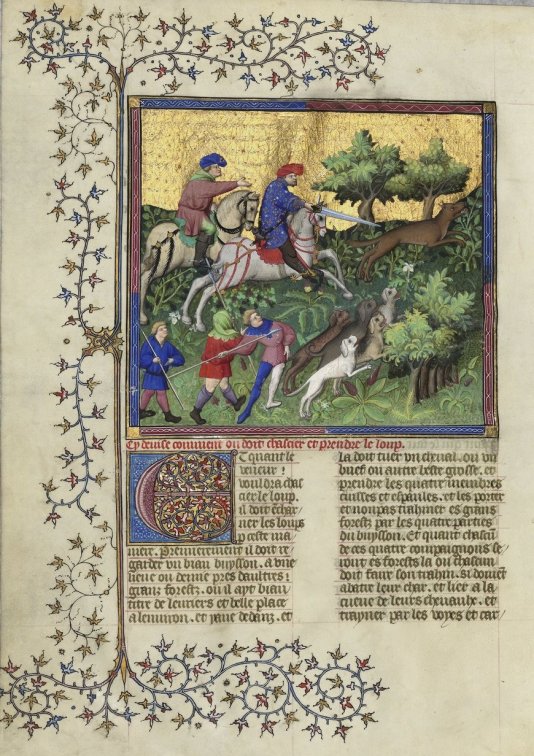 Cy devise comment on doit chascier et prendre le loup.
Et quant le
veneur
vouldra chas
cier le loup.
il doit echar
ner les loups
p ceste ma
niere. Premierement il doit re
garder un biau buysson. a une
lieue ou demie pres daultres
grans forestz. ou il ayt biau
titre de levriers et belle place
a lenviron. et yaue dedanz. et
la doit tuer un cheval. ou un
buef ou autre beste grosse. et
prendre les quatre membres
cuisses et espaules. et les porter
et non pas trahiner es grans
forestz par les quatre parties
du buysson. Et quant chascun
de ces quatre compaignons se
ront es forestz la ou chascun
doit faire son trahin. si doivent
abatre leur char. et lier a la
cueue de leurs chevaulx. et
trayner par les voyes et car